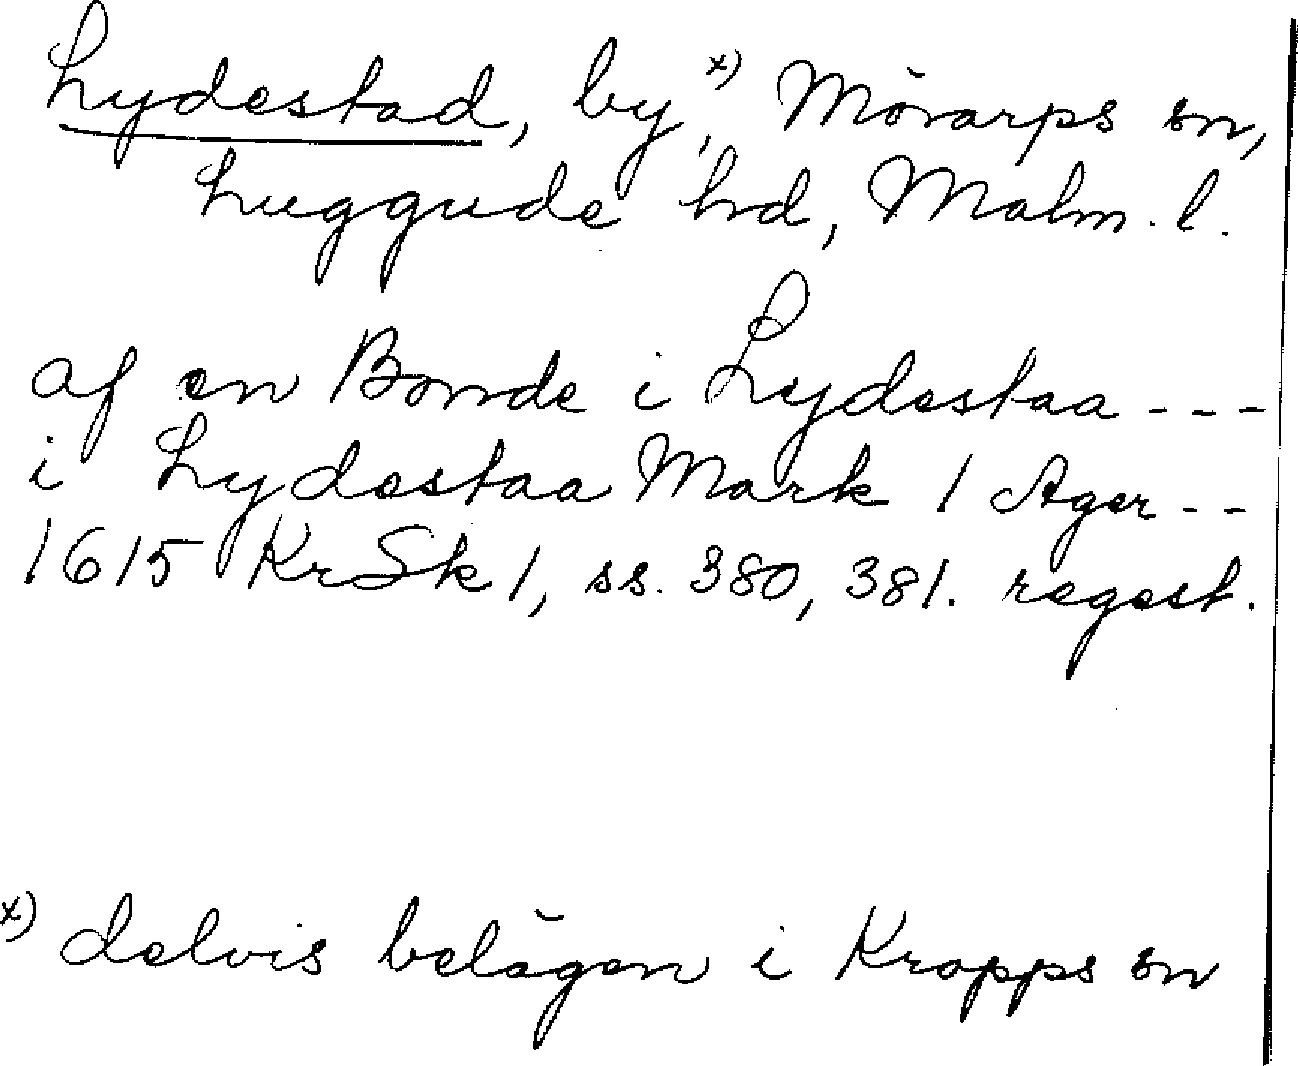 Lydestad, by,x) Mörarps sn,
Luggude hd, Malm. l.
af en Bonde i Lydestaa ---
i Lydestaa Mark 1 Ager --
1615 KrSk 1, ss. 380, 381. regest.
x) delvis belägen i Kropps sn